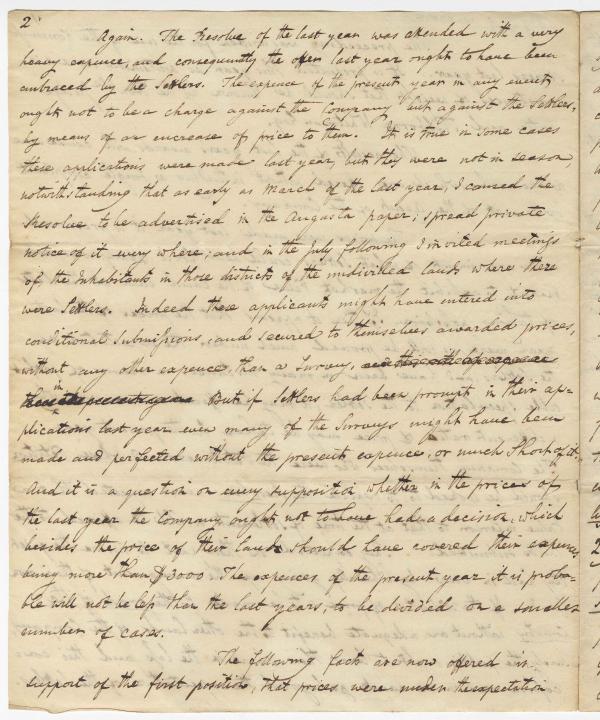 2
Again. The Resolve of the last year was attended with a very
heavy expence, and consequently the offer last year ought to have been
embraced by the Settlers. The expence of the present year in any event
ought not to be a charge against the Company but against the Settlers,
by means of an encrease of price to them. It is true in some cases
these applications were made last year, but they were not in season,
notwithstanding that as early as March of the last year, I caused the
Resolve to be advertised in the Augusta paper; spread private
notice of it every where; and in the July following I invited meetings
of the Inhabitants in those districts of the undivided lands where there
were Settlers. Indeed these applicants might have entered into
conditional Submissions, and secured to themselves awarded prices,
without any other expence, than a Survey,
in But if Settlers had been prompt in their ap-
plications last year even many of the Surveys might have been
made and perfected without the present expence, or much Short of it.
And it is a question on every supposition whether in the prices of
the last year the Company ought not to have had a decision, which
besides the price of their lands should have covered their expences
being more than $3000. The expences of the present year it is proba-
ble will not be less than the last years, to be divided on a smaller
number of cases.
The following facts are now offered in
support of the first position, that prices were under the expectation